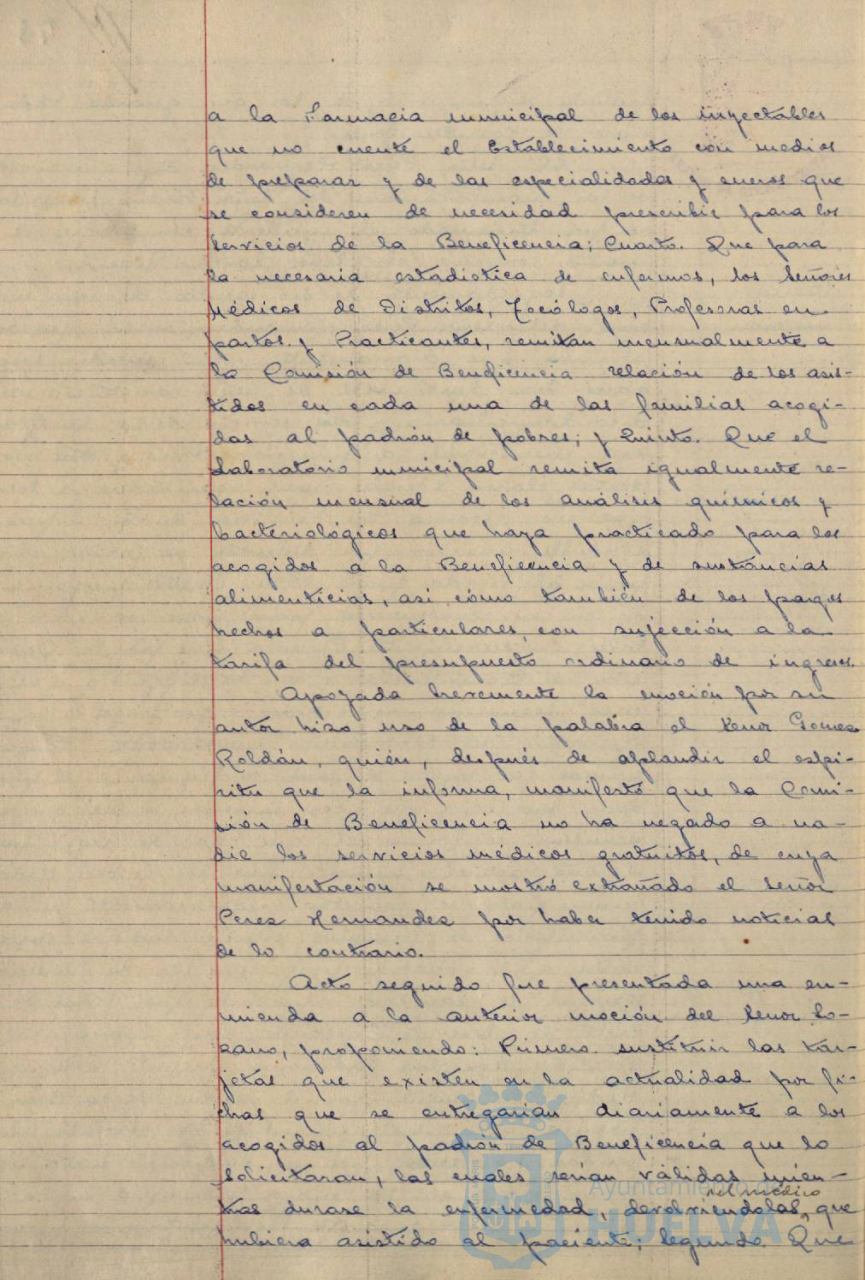 a la Farmacia municipal de los inyectables
que no cuente el Establecimiento con medios
de preparar y de las especialidades y sueros que
se consideren de necesidad prescribir para los
servicios de la Beneficencia; Cuarto. Que para
la necesaria estadística de enfermos, los Señores
Médicos de Distritos, Tocólogos, Profesoras en
partos y Practicantes, remitan mensualmente a
la Comisión de Beneficencia relación de los asis-
tidos en cada una de las familias acogi-
das al padrón de pobres; y Quinto. Que el
Laboratorio municipal remita igualmente re-
lación mensual de los análisis químicos y
bacteriológicos que haya practicado para los
acogidos a la Beneficencia y de sustancias
alimenticias, así cómo también de los pagos
hechos a particulares, con sujección a la
tarifa del presupuesto ordinario de ingresos.
Apoyada brevemente la moción por su
autor hizo uso de la palabra el señor Gomez
Roldán, quién, después de aplaudir el espí-
ritu que la informa, manifestó que la Comi-
sión de Beneficencia no ha negado a na-
die los servicios médicos gratuitos, de cuya
manifestación se mostró extrañado el señor
Perez Hernandez por haber tenido noticias
de lo contrario.
Acto seguido fue presentada una en-
mienda a la anterior moción del señor Lo-
zano, proponiendo: Primero. sustituir las tar-
jetas que existen en la actualidad por fi-
chas que se entregarían diariamente a los
acogidos al padrón de Beneficencia que lo
solicitaran, las cuales serían válidas mien-
tras durase la enfermedad, devolviendolas del médico que
hubiera asistido al paciente; Segundo. Que
Ayuntamiento de
HUELVA